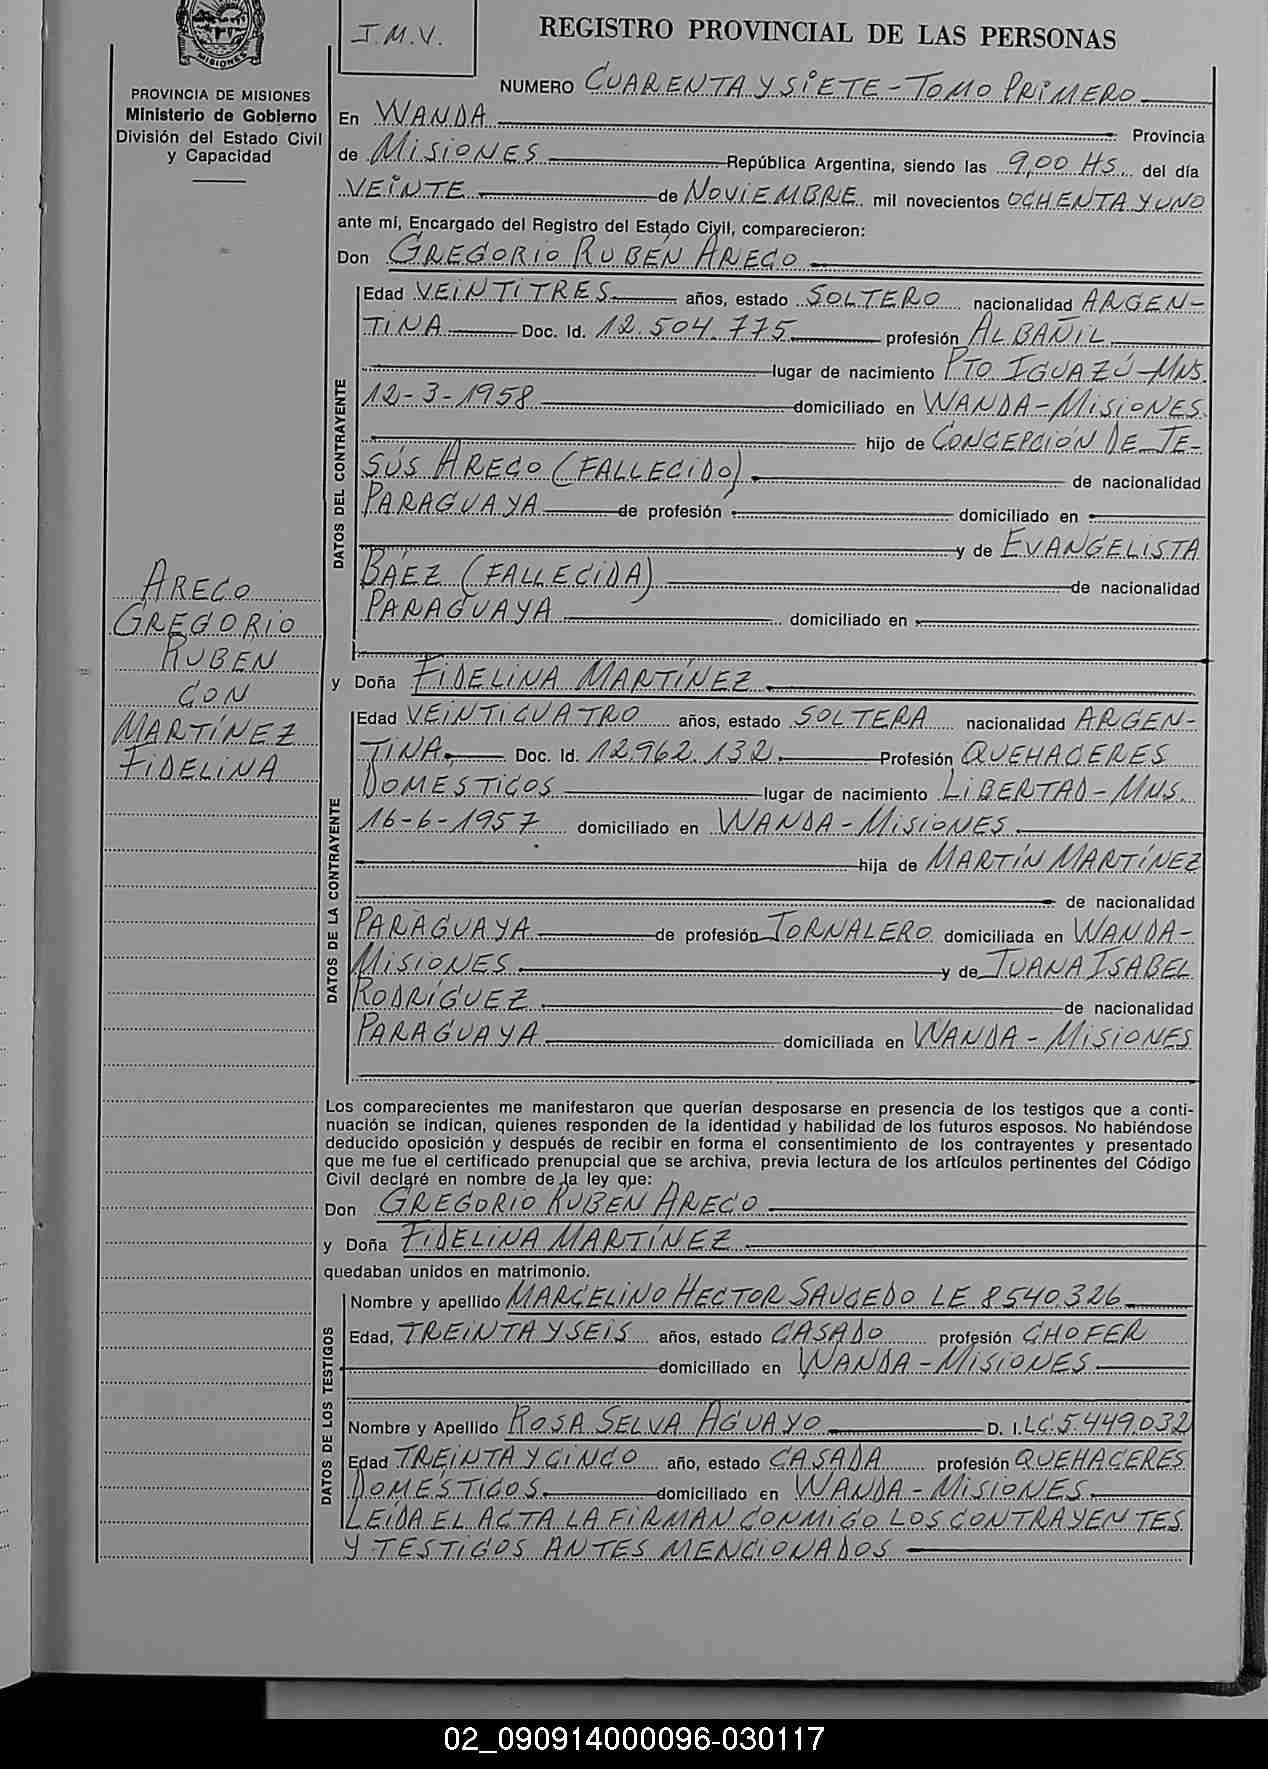 MISIONES
J.M.V.
REGISTRO PROVINCIAL DE LAS PERSONAS
PROVINCIA DE MISIONES
Ministerio de Gobierno
División del Estado Civil
y Capacidad
NUMERO CUARENTA Y SIETE - TOMO PRIMERO
En WANDA Provincia
de MISIONES República Argentina, siendo las 9,00 HS. del día
VEINTE de NOVIEMBRE mil novecientos OCHENTA Y UNO
ante mí, Encargado del Registro del Estado Civil, comparecieron:
Don GREGORIO RUBÉN ARECO
DATOS DEL CONTRAYENTE
Edad VEINTITRES años, estado SOLTERO nacionalidad ARGEN-
TINA Doc. Id. 12.504.775 profesión ALBAÑIL
lugar de nacimiento PTO IGUAZÚ-MNS.
12-3-1958 domiciliado en WANDA-MISIONES.
hijo de CONCEPCIÓN DE JE-
SÚS ARECO (FALLECIDO) de nacionalidad
PARAGUAYA de profesión domiciliado en
y de EVANGELISTA
BÁEZ (FALLECIDA) de nacionalidad
PARAGUAYA domiciliado en
ARECO
GREGORIO
RUBEN
CON
MARTÍNEZ
FIDELINA
y Doña FIDELINA MARTÍNEZ
DATOS DE LA CONTRAYENTE
Edad VEINTICUATRO años, estado SOLTERA nacionalidad ARGEN-
TINA Doc. Id. 12.962.132 Profesión QUEHACERES
DOMESTICOS lugar de nacimiento LIBERTAD-MNS.
16-6-1957 domiciliado en WANDA-MISIONES
hija de MARTÍN MARTÍNEZ
de nacionalidad
PARAGUAYA de profesión JORNALERO domiciliada en WANDA-
MISIONES y de JUANA ISABEL
RODRÍGUEZ de nacionalidad
PARAGUAYA domiciliada en WANDA-MISIONES
Los comparecientes me manifestaron que querían desposarse en presencia de los testigos que a conti-
nuación se indican, quienes responden de la identidad y habilidad de los futuros esposos. No habiéndose
deducido oposición y después de recibir en forma el consentimiento de los contrayentes y presentado
que me fue el certificado prenupcial que se archiva, previa lectura de los artículos pertinentes del Código
Civil declaré en nombre de la ley que:
Don GREGORIO RUBEN ARECO
y Doña FIDELINA MARTÍNEZ
quedaban unidos en matrimonio.
DATOS DE LOS TESTIGOS
Nombre y apellido MARCELINO HECTOR SAUCEDO LE 8540.326
Edad, TREINTA Y SEIS años, estado CASADO profesión CHOFER
domiciliado en WANDA-MISIONES
Nombre y Apellido ROSA SELVA AGUAYO D. I. LC. 5.449.032
Edad TREINTA Y CINCO año, estado CASADA profesión QUEHACERES
DOMÉSTICOS domiciliado en WANDA-MISIONES.
LEÍDA EL ACTA LA FIRMAN CONMIGO LOS CONTRAYENTES
Y TESTIGOS ANTES MENCIONADOS
02_090914000096-030117